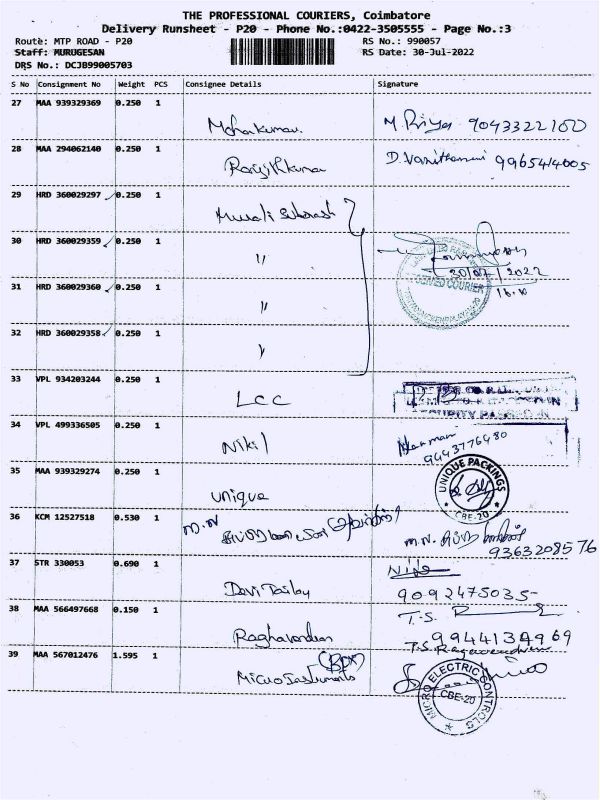 THE PROFESSIONAL COURIERS, Coimbatore
Delivery Runsheet - P20 - Phone No.:0422-3505555 - Page No.:3
Route: MTP ROAD - P20
RS No.: 990057
Staff: MURUGESAN
RS Date: 30-Jul-2022
DRS No.: DCJB99005703
S No Consignment No Weight PCS Consignee Details Signature
27 MAA 939329369 0.250 1
Mohankumar M. Priya 9043322100
28 MAA 294062140 0.250 1
D. Vanithamani 9965414005
29 HRD 360029297 0.250 1
Murali Subarash
30 HRD 360029359 0.250 1
"
30/07/2022
31 HRD 360029360 0.250 1
RECEIVED COURIER
"
32 HRD 360029358 0.250 1
"
33 VPL 934203244 0.250 1
LCC
34 VPL 499336505 0.250 1
Nikil 9443776480
35 MAA 939329274 0.250 1
unique
UNIQUE PACKINGS
CBE-20
36 KCM 12527518 0.530 1
M.N
M.N.
9363208576
37 STR 330053 0.690 1
Devi 9092475035
38 MAA 566497668 0.150 1
T.S.
Raghavendran 9944134969
T.S. Ragavendran
39 MAA 567012476 1.595 1
(BOX)
Micro Instruments
MICRO ELECTRIC CONTROLS
CBE-20